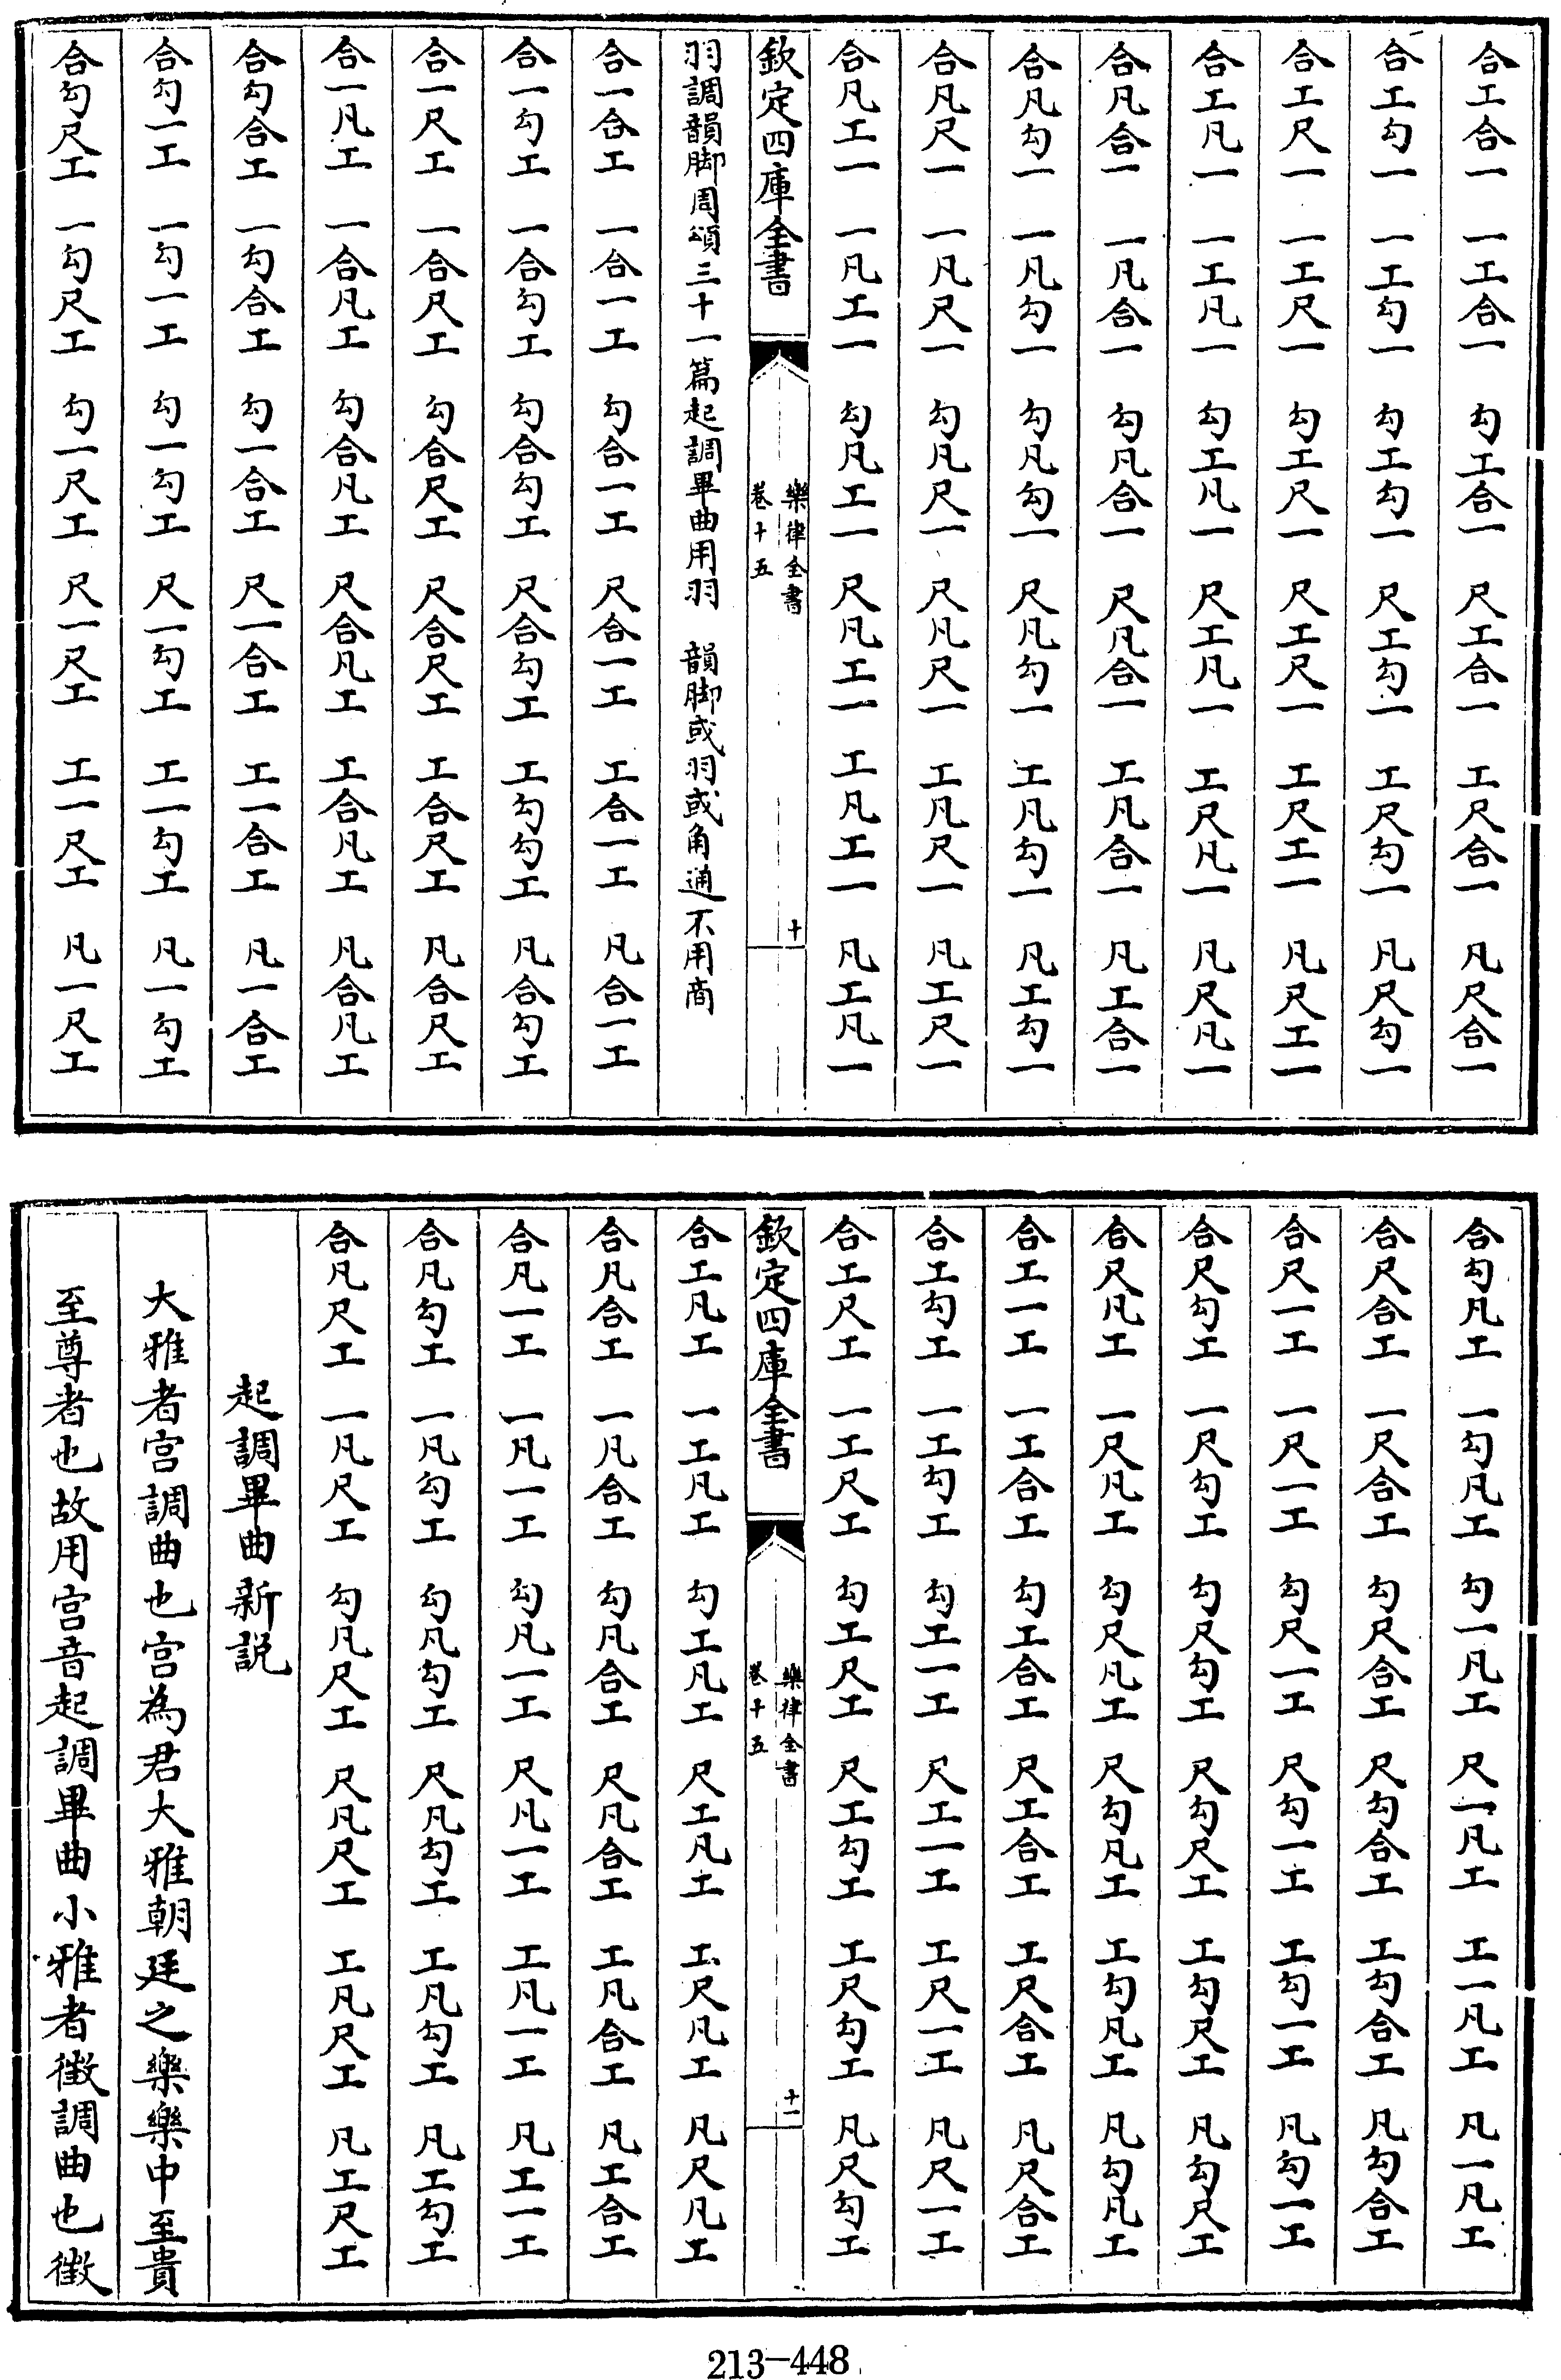 合工合一　一工合一　勾工合一　尺工合一　工尺合一　凡尺合一
合工勾一　一工勾一　勾工勾一　尺工勾一　工尺勾一　凡尺勾一
合工尺一　一工尺一　勾工尺一　尺工尺一　工尺工一　凡尺工一
合工凡一　一工凡一　勾工凡一　尺工凡一　工尺凡一　凡尺凡一
合凡合一　一凡合一　勾凡合一　尺凡合一　工凡合一　凡工合一
合凡勾一　一凡勾一　勾凡勾一　尺凡勾一　工凡勾一　凡工勾一
合凡尺一　一凡尺一　勾凡尺一　尺凡尺一　工凡尺一　凡工尺一
合凡工一　一凡工一　勾凡工一　尺凡工一　工凡工一　凡工凡一
欽定四庫全書　樂律全書卷十五　十
羽調韻脚周頌三十一篇起調畢曲用羽　韻脚或羽或角通不用商
合一合工　一合一工　勾合一工　尺合一工　工合一工　凡合一工
合一勾工　一合勾工　勾合勾工　尺合勾工　工勾勾工　凡合勾工
合一尺工　一合尺工　勾合尺工　尺合尺工　工合尺工　凡合尺工
合一凡工　一合凡工　勾合凡工　尺合凡工　工合凡工　凡合凡工
合勾合工　一勾合工　勾一合工　尺一合工　工一合工　凡一合工
合勾一工　一勾一工　勾一勾工　尺一勾工　工一勾工　凡一勾工
合勾尺工　一勾尺工　勾一尺工　尺一尺工　工一尺工　凡一尺工
合勾凡工　一勾凡工　勾一凡工　尺一凡工　工一凡工　凡一凡工
合尺合工　一尺合工　勾尺合工　尺勾合工　工勾合工　凡勾合工
合尺一工　一尺一工　勾尺一工　尺勾一工　工勾一工　凡勾一工
合尺勾工　一尺勾工　勾尺勾工　尺勾尺工　工勾尺工　凡勾尺工
合尺凡工　一尺凡工　勾尺凡工　尺勾凡工　工勾凡工　凡勾凡工
合工一工　一工合工　勾工合工　尺工合工　工尺合工　凡尺合工
合工勾工　一工勾工　勾工一工　尺工一工　工尺一工　凡尺一工
合工尺工　一工尺工　勾工尺工　尺工勾工　工尺勾工　凡尺勾工
欽定四庫全書　樂律全書卷十五　十一
合工凡工　一工凡工　勾工凡工　尺工凡工　工尺凡工　凡尺凡工
合凡合工　一凡合工　勾凡合工　尺凡合工　工凡合工　凡工合工
合凡一工　一凡一工　勾凡一工　尺凡一工　工凡一工　凡工一工
合凡勾工　一凡勾工　勾凡勾工　尺凡勾工　工凡勾工　凡工勾工
合凡尺工　一凡尺工　勾凡尺工　尺凡尺工　工凡尺工　凡工尺工
起調畢曲新説
大雅者宫調曲也宫為君大雅朝廷之樂樂中至貴
至尊者也故用宫音起調畢曲小雅者徵調曲也徵
213-448